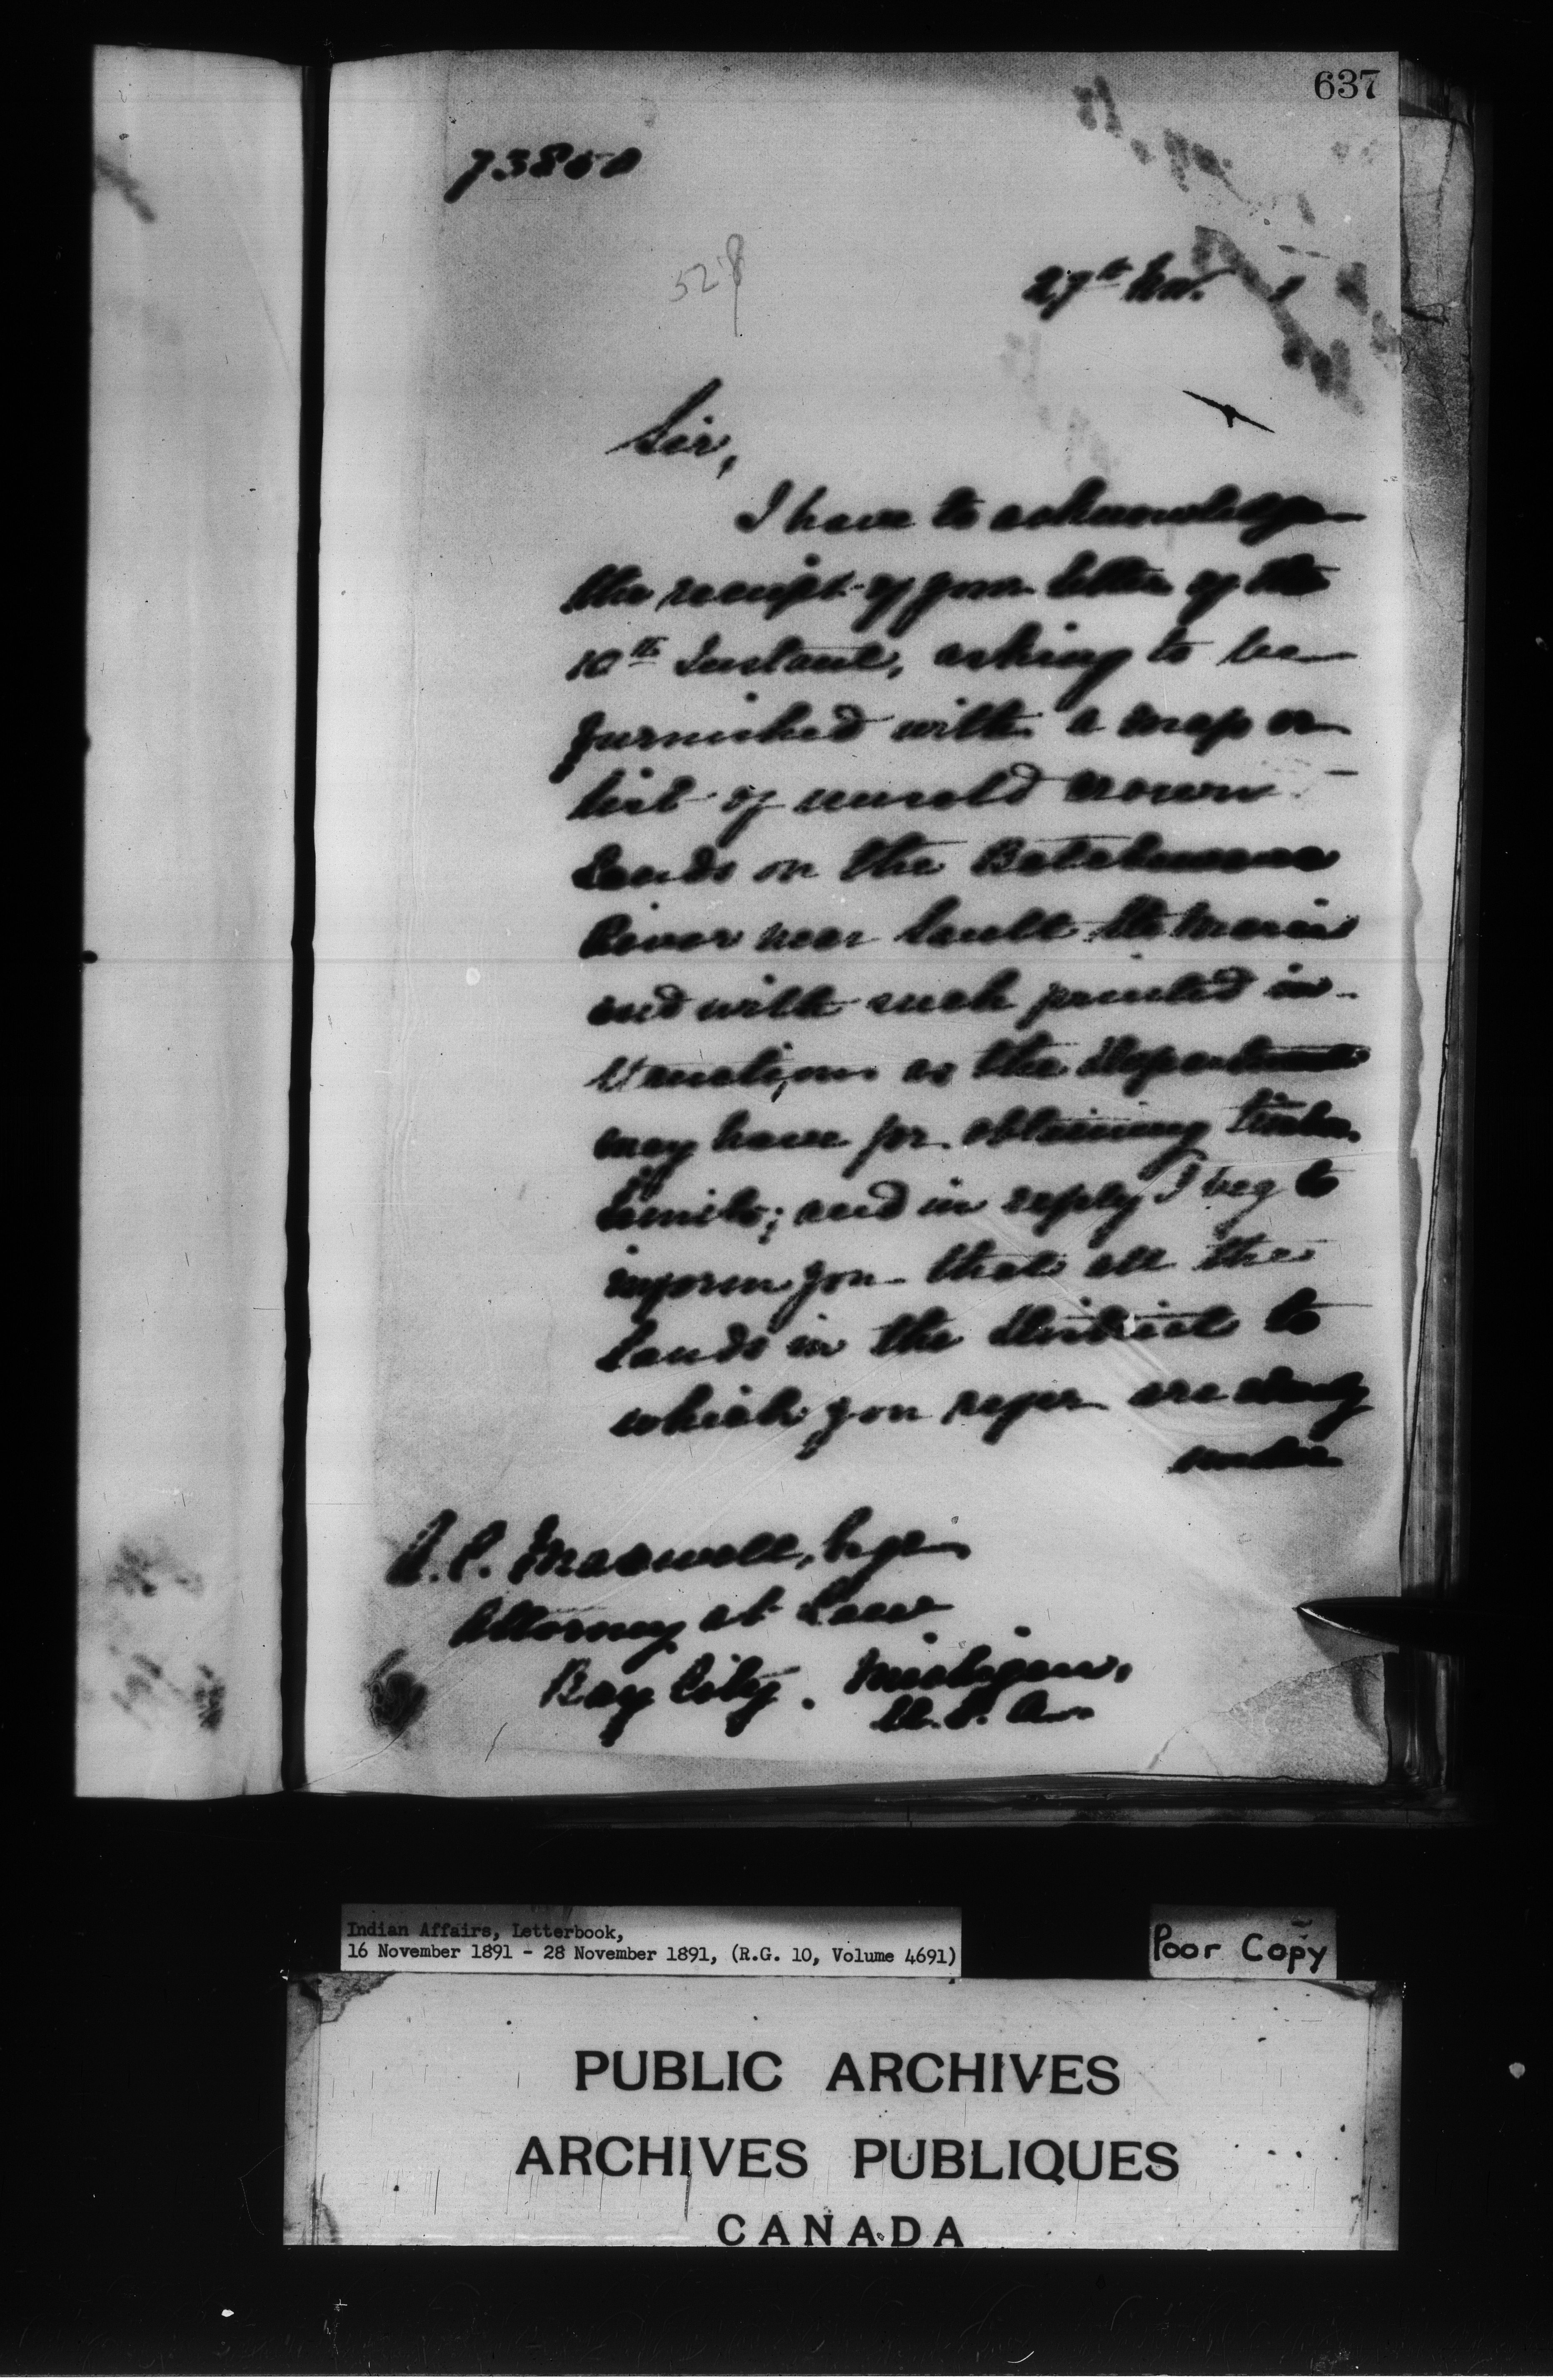 637
73850
528
27th Nov. 1
Sir,
I have to acknowledge
the receipt of your letter of the
10th Instant, asking to be
furnished with a map or
list of unsold Crown
Lands on the Batchewana
River near Sault Ste Marie
and with such printed in-
structions as the Department
may have for obtaining timber
limits; and in reply I beg to
inform you that all the
lands in the District to
which you refer are
under
Maxwell, Esqr.
Attorney at Law
Bay City. Michigan,
U.S.A.
Indian Affairs, Letterbook,
16 November 1891 - 28 November 1891, (R.G. 10, Volume 4691)
Poor Copy
PUBLIC ARCHIVES
ARCHIVES PUBLIQUES
CANADA